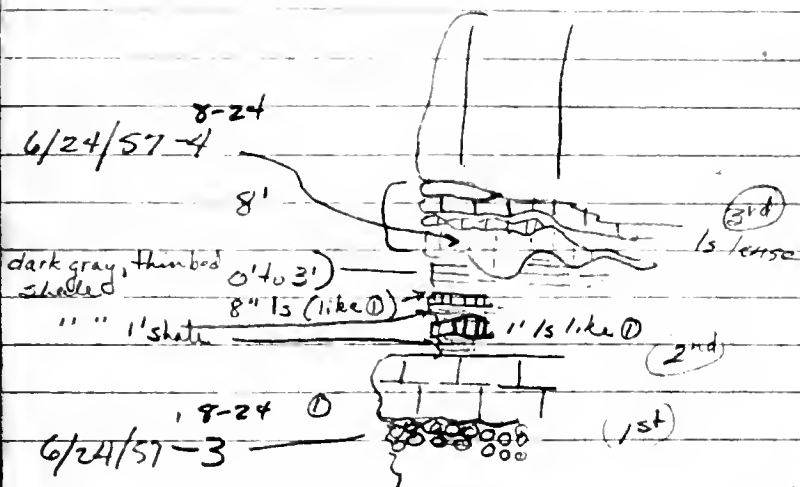 8-24
6/24/57-4
8'
3rd
ls lense
dark gray, thin bed
shale
0' to 3'
8" ls (like ①)
" " 1' shale
1' ls like ①
2nd
8-24 ①
(1st)
6/24/57-3